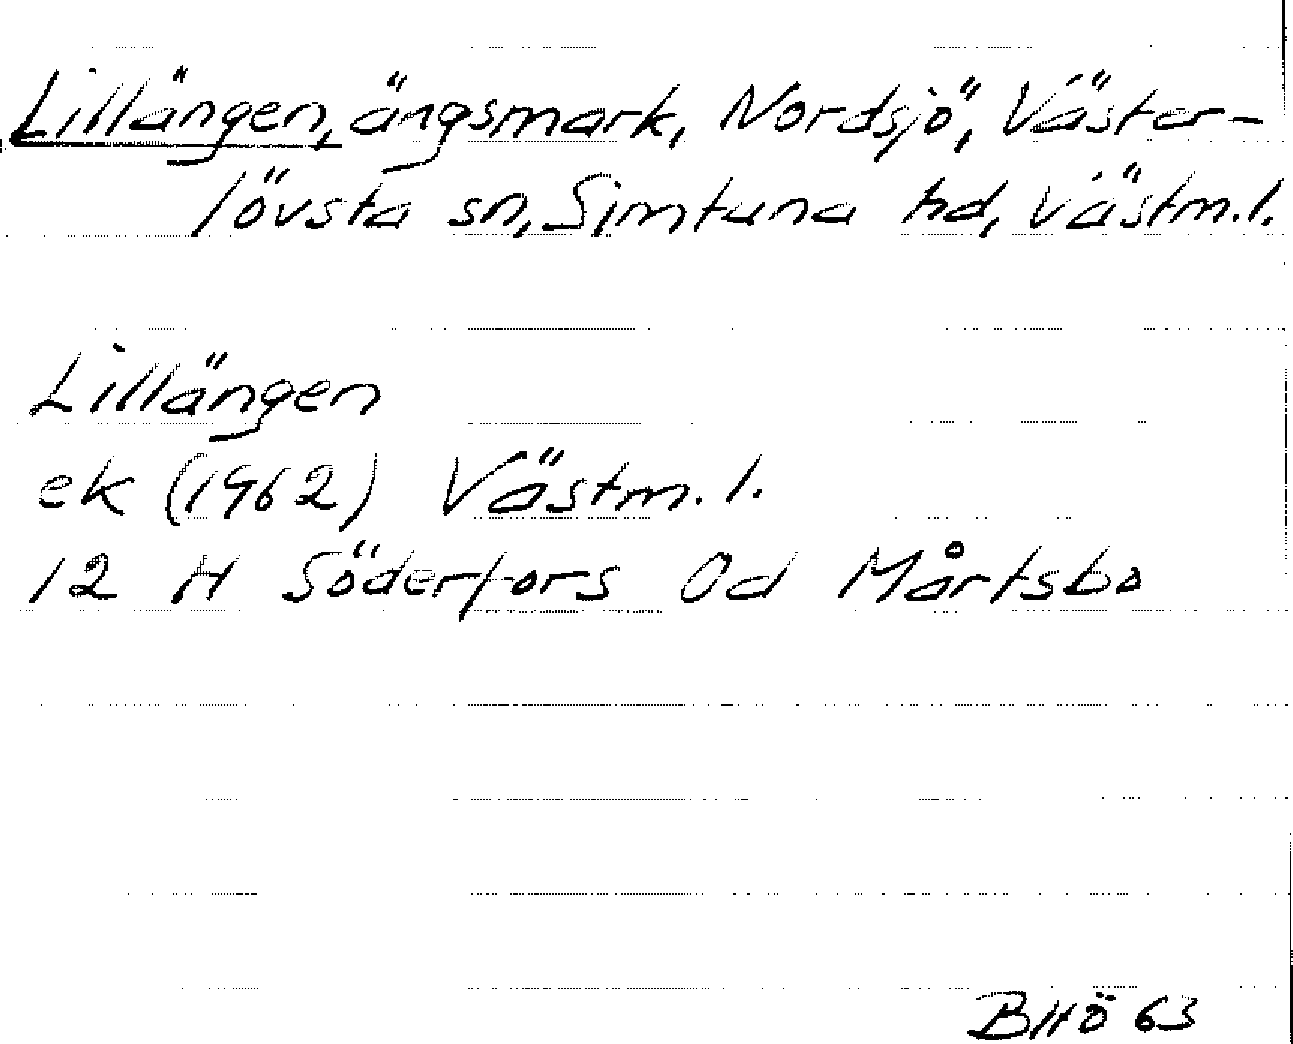 Lillängen, ängsmark, Nordsjö, Väster-
lövsta sn, Simtuna hd, Västm.l.
Lillängen
ek (1962) Västm.l.
12 H Söderfors 0d Mårtsbo
BHÖ 63